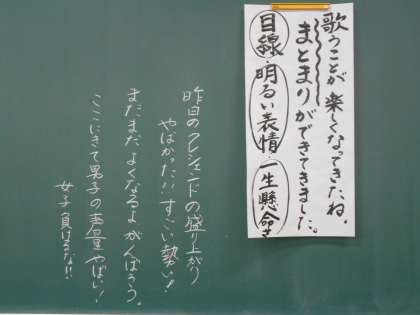 歌うことが楽しくなってきたね。
まとまりができてきました。
目線・明るい表情・一生懸命さ
昨日のクレシェンドの盛り上がり
やばかった!!すごい勢い!
まだまだよくなるよがんばろう。
ここにきて男子の声量やばい!
女子負けるな!!